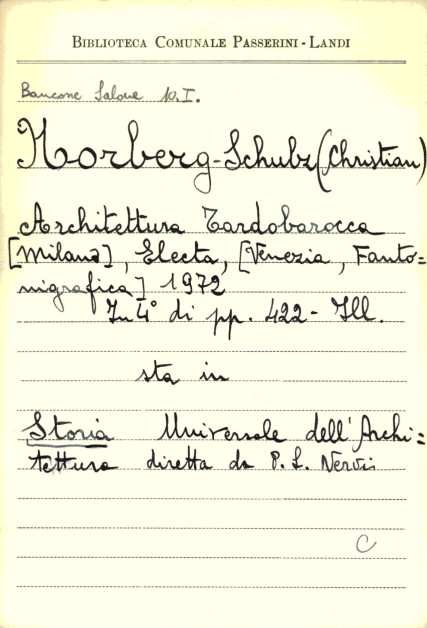 BIBLIOTECA COMUNALE PASSERINI - LANDI
Bancone Salone 10.I.
Norberg-Schulz (Christian)
Architettura Tardobarocca
[Milano], Electa, [Venezia, Fanto=
nigrafica] 1972
In 4° di pp. 422 - Ill.
sta in
Storia Universale dell'Archi=
tettura diretta da P. L. Nervi
C